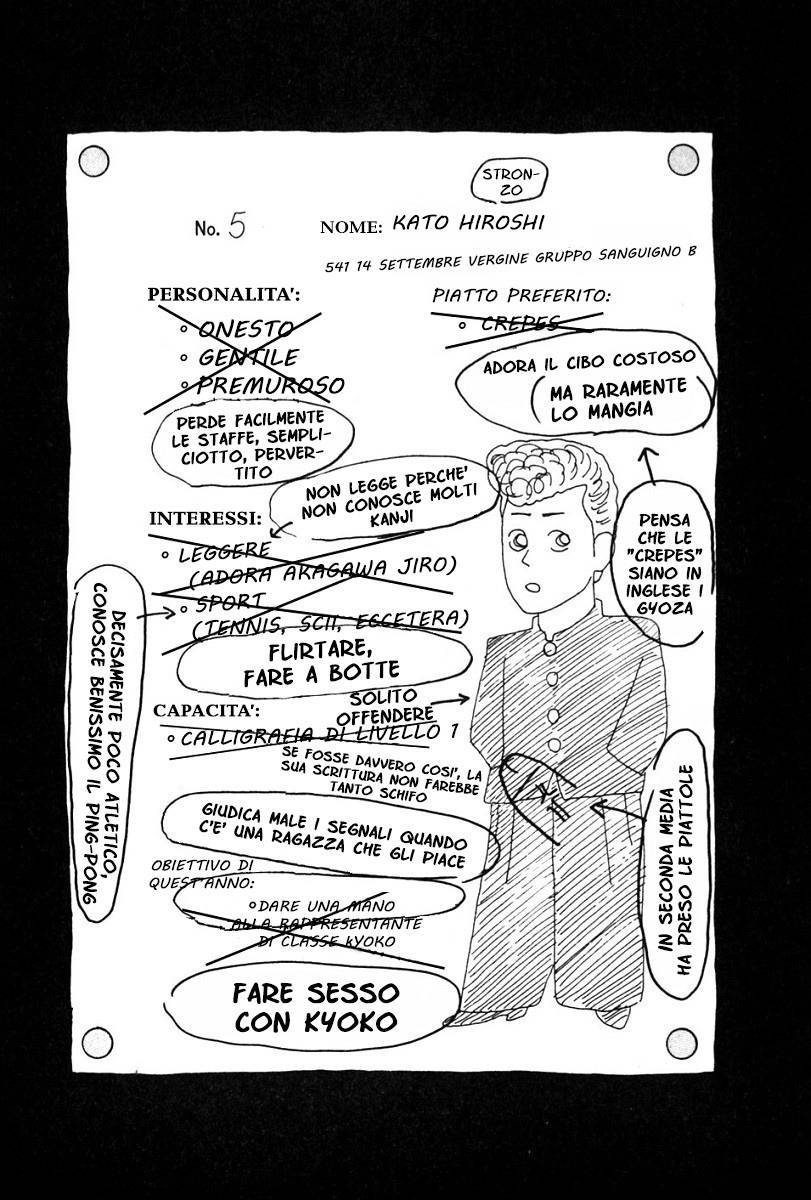 STRON-
ZO
No. 5
NOME: KATO HIROSHI
541 14 SETTEMBRE VERGINE GRUPPO SANGUIGNO B
PERSONALITA':
° ONESTO
° GENTILE
° PREMUROSO
PERDE FACILMENTE
LE STAFFE, SEMPLI-
CIOTTO, PERVER-
TITO
PIATTO PREFERITO:
° CREPES
ADORA IL CIBO COSTOSO
MA RARAMENTE
LO MANGIA
PENSA
CHE LE
"CREPES"
SIANO IN
INGLESE I
GYOZA
NON LEGGE PERCHE'
NON CONOSCE MOLTI
KANJI
INTERESSI:
° LEGGERE
(ADORA AKAGAWA JIRO)
° SPORT
(TENNIS, SCII, ECCETERA)
FLIRTARE,
FARE A BOTTE
DECISAMENTE POCO ATLETICO,
CONOSCE BENISSIMO IL PING-PONG
SOLITO
OFFENDERE
CAPACITA':
° CALLIGRAFIA DI LIVELLO 1
SE FOSSE DAVVERO COSI', LA
SUA SCRITTURA NON FAREBBE
TANTO SCHIFO
GIUDICA MALE I SEGNALI QUANDO
C'E' UNA RAGAZZA CHE GLI PIACE
IN SECONDA MEDIA
HA PRESO LE PIATTOLE
OBIETTIVO DI
QUEST'ANNO:
° DARE UNA MANO
ALLA RAPPRESENTANTE
DI CLASSE KYOKO
FARE SESSO
CON KYOKO